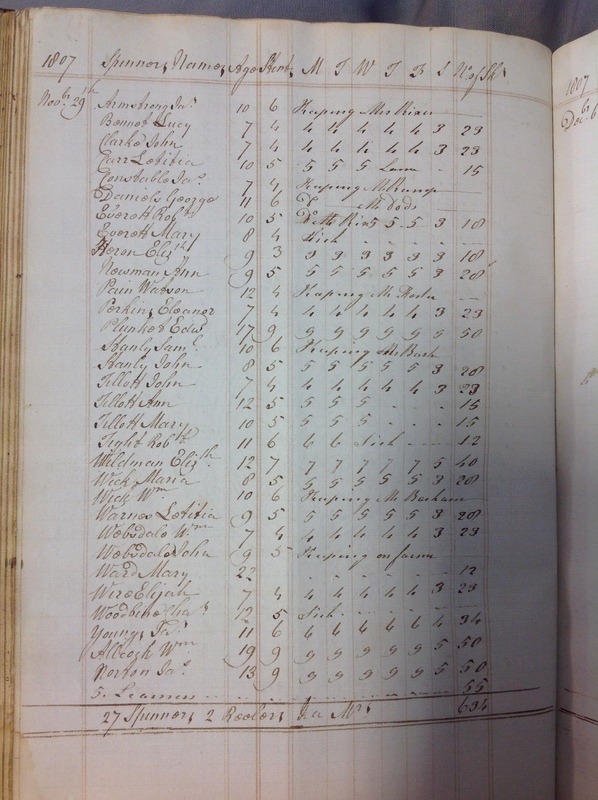 1807 Spinners Names Age Stint M T W T B S No of Sks
Novbr 29th Armstrong Jas 10 6 Keeping Mr Rieu
Bennet Lucy 7 4 4 4 4 4 4 3 23
Clarke John 7 4 4 4 4 4 4 3 23
Carr Lætitia 10 5 5 5 5 Lame - 15
Constable Jas 7 4 Keeping
Daniels George 11 6 Do
Everett Robt 10 5 Ditto 5 5 5 3 18
Everett Mary 8 4 Sick - - - -
Heron Elizth 9 3 3 3 3 3 3 3 18
Newman Ann 9 5 5 5 5 5 5 3 28
Pain Watson 12 4 Keeping Mr
Perkins Eleanor 7 4 4 4 4 4 4 3 23
Plunket Edwd 17 9 9 9 9 9 9 5 50
Stanly Saml 10 6 Keeping Mr Buck
Stanly John 8 5 5 5 5 5 5 3 28
Tillott John 7 4 4 4 4 4 4 3 23
Tillott Ann 12 5 5 5 5 - - - 15
Tillott Mary 10 5 5 5 5 - - - 15
Tight Robt 11 6 6 6 Sick - - - 12
Wildman Elizth 12 7 7 7 7 7 7 5 40
Wick Maria 8 5 5 5 5 5 5 3 28
Wick Wm 10 6 Keeping Mr
Warnes Lætitia 9 5 5 5 5 5 5 3 28
Webdale Wm 7 4 4 4 4 4 4 3 23
Webdale John 9 5 Keeping on farm
Ward Mary 22 - - - - - - 12
Wire Elijah 7 4 4 4 4 4 4 3 23
Woodbine Chas 12 5 Sick - - - -
Youngs Jas 11 6 6 6 6 6 6 4 34
Allcock Wm 19 9 9 9 9 9 9 5 50
Norton Jas 13 9 9 9 9 9 9 5 50
5 Learners - - - - 55
27 Spinners 2 Reelers 634
1807
Decbr 6